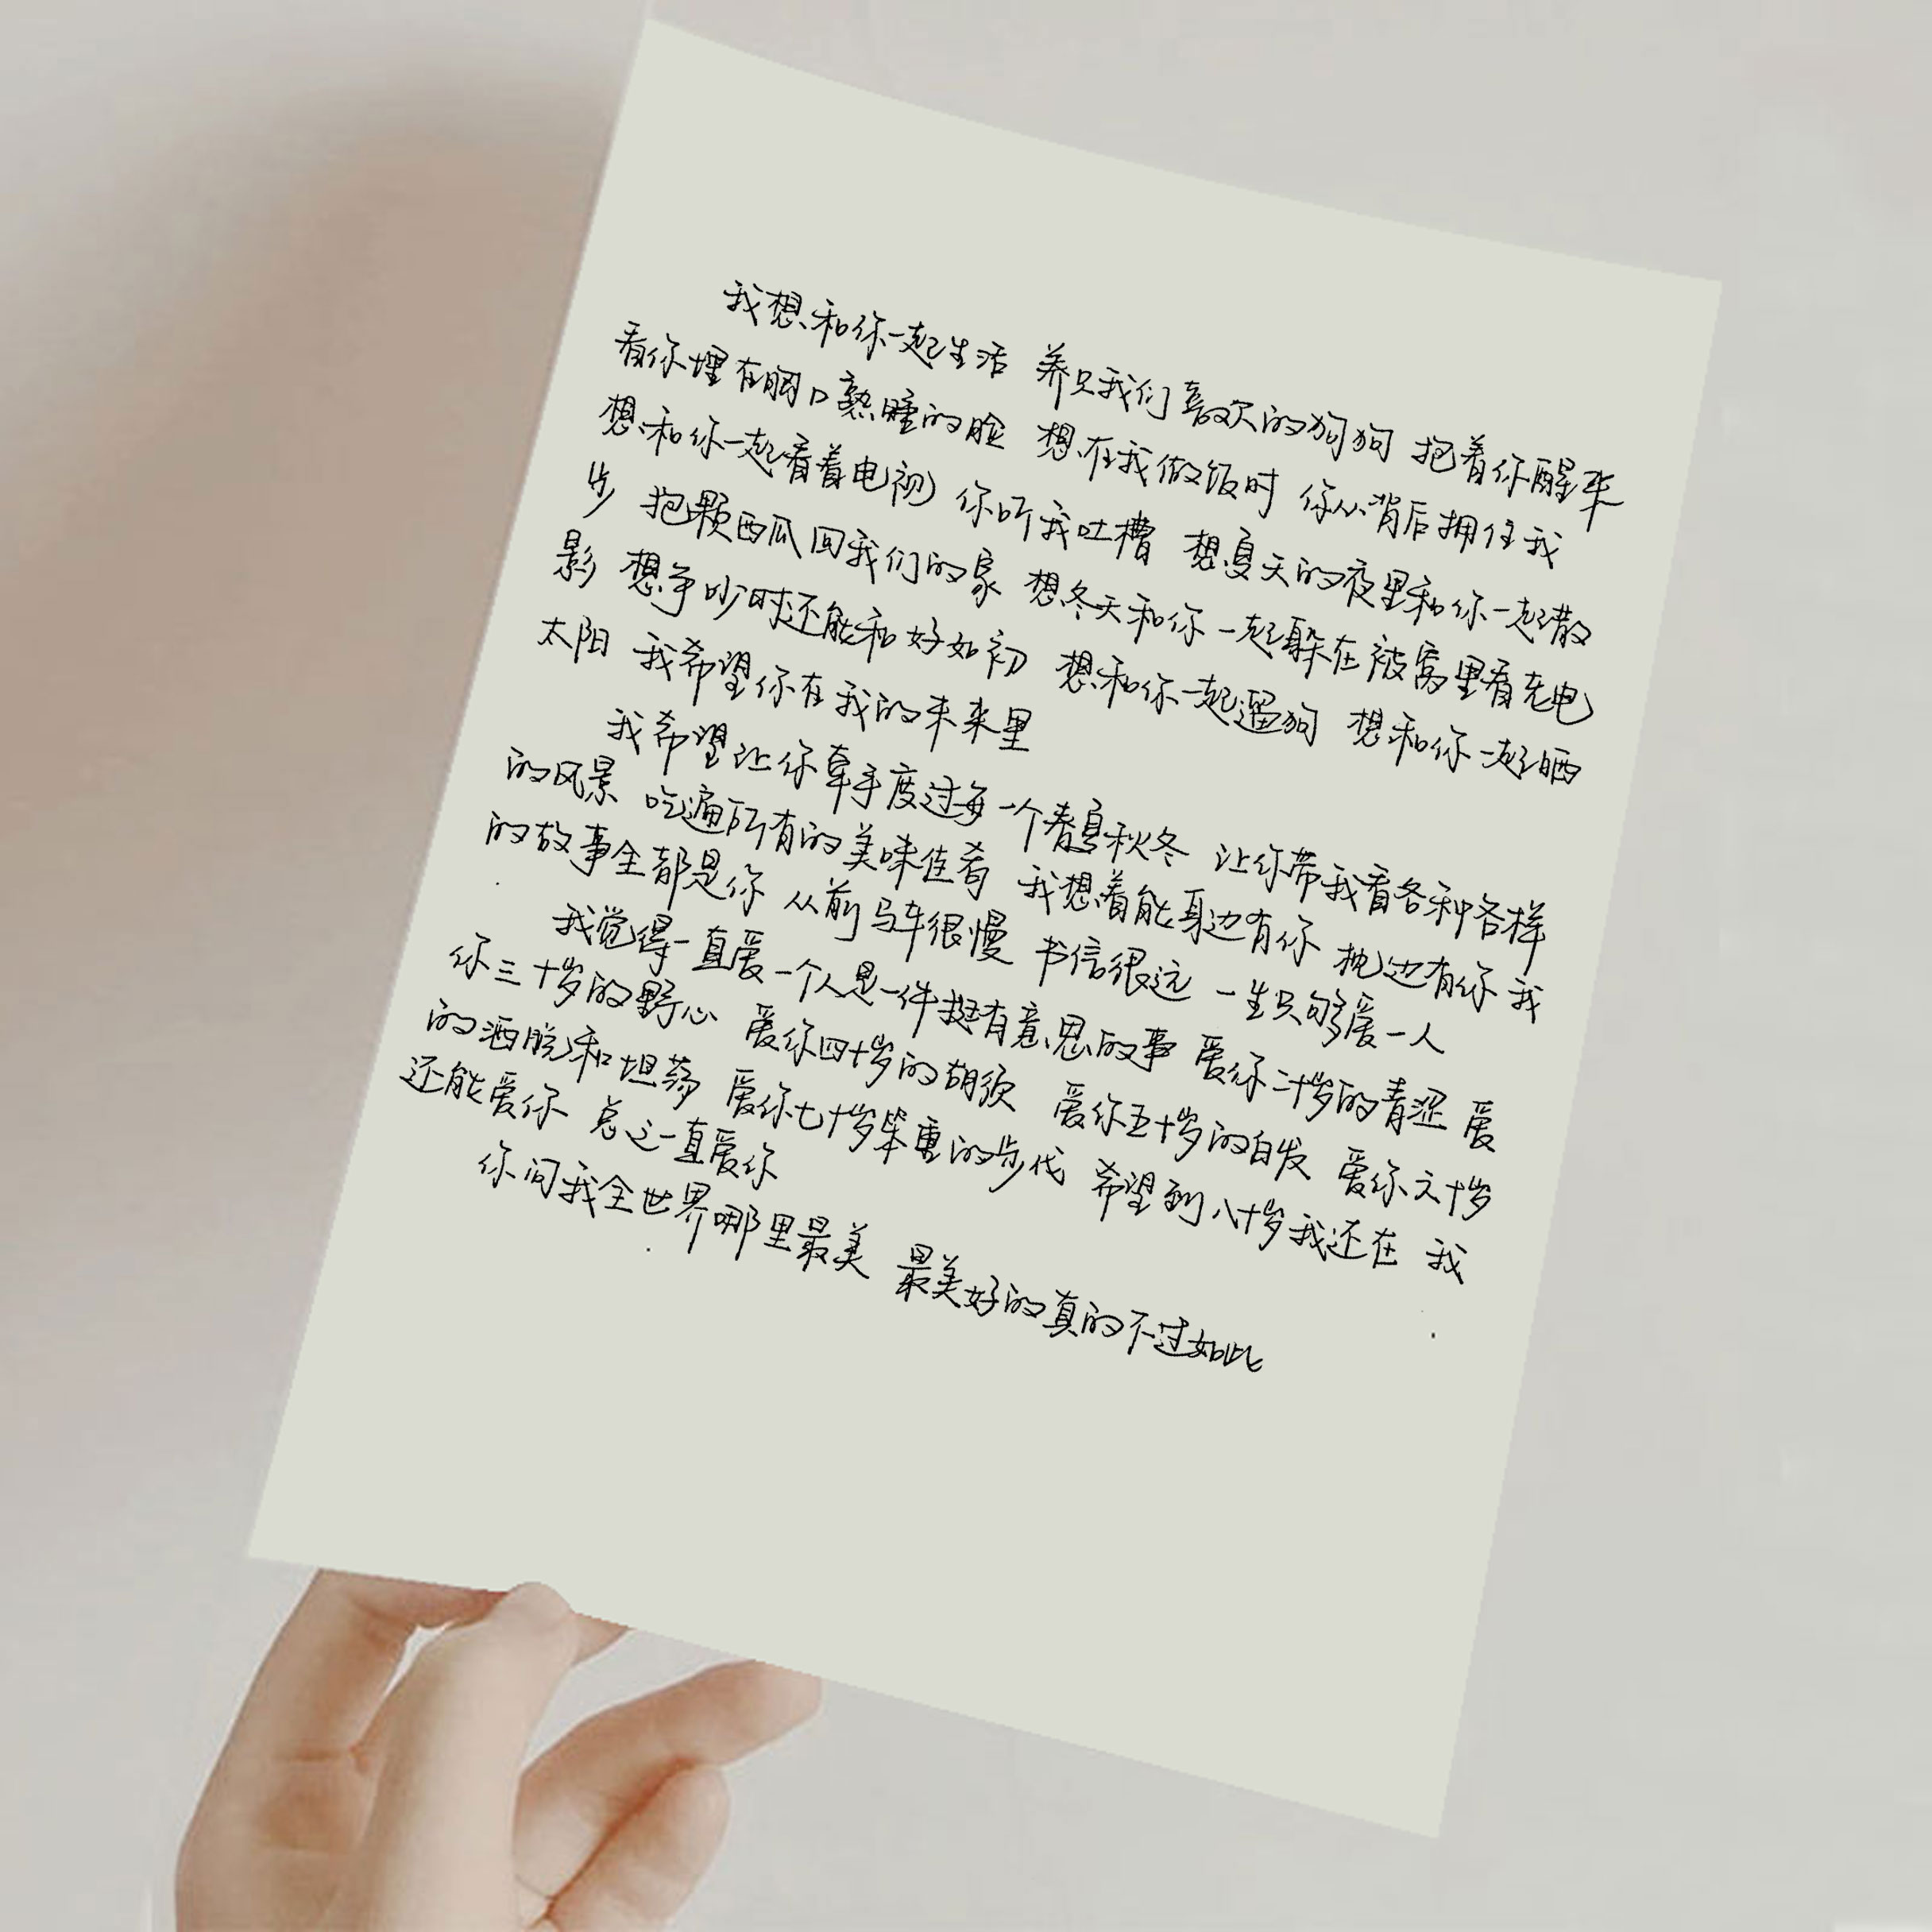 我想和你一起生活 养只我们喜欢的狗狗 抱着你醒来
看你埋在胸口熟睡的脸 想在我做饭时 你从背后拥住我
想和你一起看着电视 你听我吐槽 想夏天的夜里和你一起散
步 抱颗西瓜回我们的家 想冬天和你一起躲在被窝里看充电
影 想争吵时还能和好如初 想和你一起遛狗 想和你一起晒
太阳 我希望你在我的未来里
我希望让你牵手度过每一个春夏秋冬 让你带我看各种各样
的风景 吃遍所有的美味佳肴 我想着能身边有你 枕边有你 我
的故事全都是你 从前马车很慢 书信很远 一生只够爱一人
我觉得一直爱一个人是一件挺有意思的事 爱你二十岁的青涩 爱
你三十岁的野心 爱你四十岁的胡须 爱你五十岁的白发 爱你六十岁
的洒脱和坦荡 爱你七十岁笨重的步伐 希望到八十岁我还在 我
还能爱你 总之一直爱你
你问我全世界哪里最美 最美好的真的不过如此